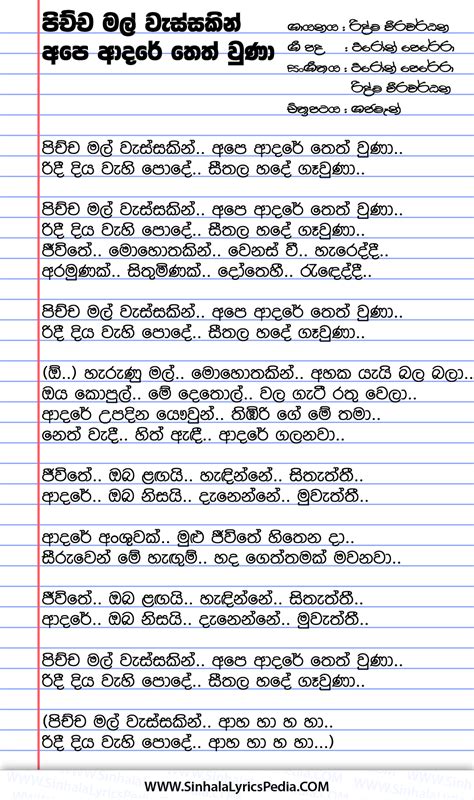 පිච්ච මල් වැස්සකින්
අපෙ ආදරේ තෙත් වුණා
ගායනය : රිද්ම වීරවර්ධන
ගී පද : චරෝෂ් පෙරේරා
සංගීතය : චරෝෂ් පෙරේරා
රිද්ම වීරවර්ධන
චිත්‍රපටය :
පිච්ච මල් වැස්සකින්.. අපෙ ආදරේ තෙත් වුණා..
රිදී දිය වැහි පොදේ.. සීතල හදේ ගෑවුණා..
පිච්ච මල් වැස්සකින්.. අපෙ ආදරේ තෙත් වුණා..
රිදී දිය වැහි පොදේ.. සීතල හදේ ගෑවුණා..
ජීවිතේ.. මොහොතකින්.. වෙනස් වී.. හැරෙද්දී..
අරමුණක්.. සිතුමිණක්.. දෝතෙහී.. රැඳෙද්දී..
පිච්ච මල් වැස්සකින්.. අපෙ ආදරේ තෙත් වුණා..
රිදී දිය වැහි පොදේ.. සීතල හදේ ගෑවුණා..
(ඕ..) හැරුණු මල්.. මොහොතකින්.. අහක යැයි බල බලා..
ඔය කොපුල්.. මේ දෙතොල්.. වල ගැටී රතු වෙලා..
ආදරේ උපදින යෞවුන්.. තිඹිරි ගේ මේ තමා..
නෙත් වැදී.. හිත් ඇඳී.. ආදරේ ගලනවා..
ජීවිතේ.. ඔබ ළඟයි.. හැඳින්නේ.. සිතැත්තී..
ආදරේ.. ඔබ නිසයි.. දැනෙන්නේ.. මුවැත්තී..
ආදරේ අංශුවක්.. මුළු ජීවිතේ හිතෙන දා..
සීරුවෙන් මේ හැඟුම්.. හද ගෙත්තමක් මවනවා..
ජීවිතේ.. ඔබ ළඟයි.. හැඳින්නේ.. සිතැත්තී..
ආදරේ.. ඔබ නිසයි.. දැනෙන්නේ.. මුවැත්තී..
පිච්ච මල් වැස්සකින්.. අපෙ ආදරේ තෙත් වුණා..
රිදී දිය වැහි පොදේ.. සීතල හදේ ගෑවුණා..
(පිච්ච මල් වැස්සකින්.. ආහ හා හ හා..
රිදී දිය වැහි පොදේ.. ආහ හා හ හා...)
www.SinhalaLyricsPedia.com